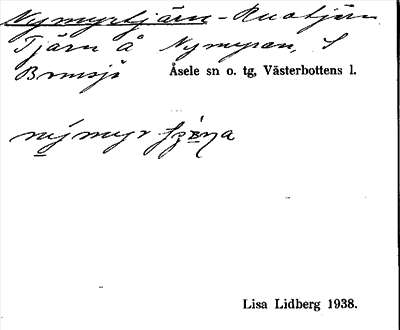 Nymyrtjärn - Ruotjärn
Tjärn å Nymyran, S
Brnsjö Åsele sn o. tg, Västerbottens l.
nýmyr
Lisa Lidberg 1938.